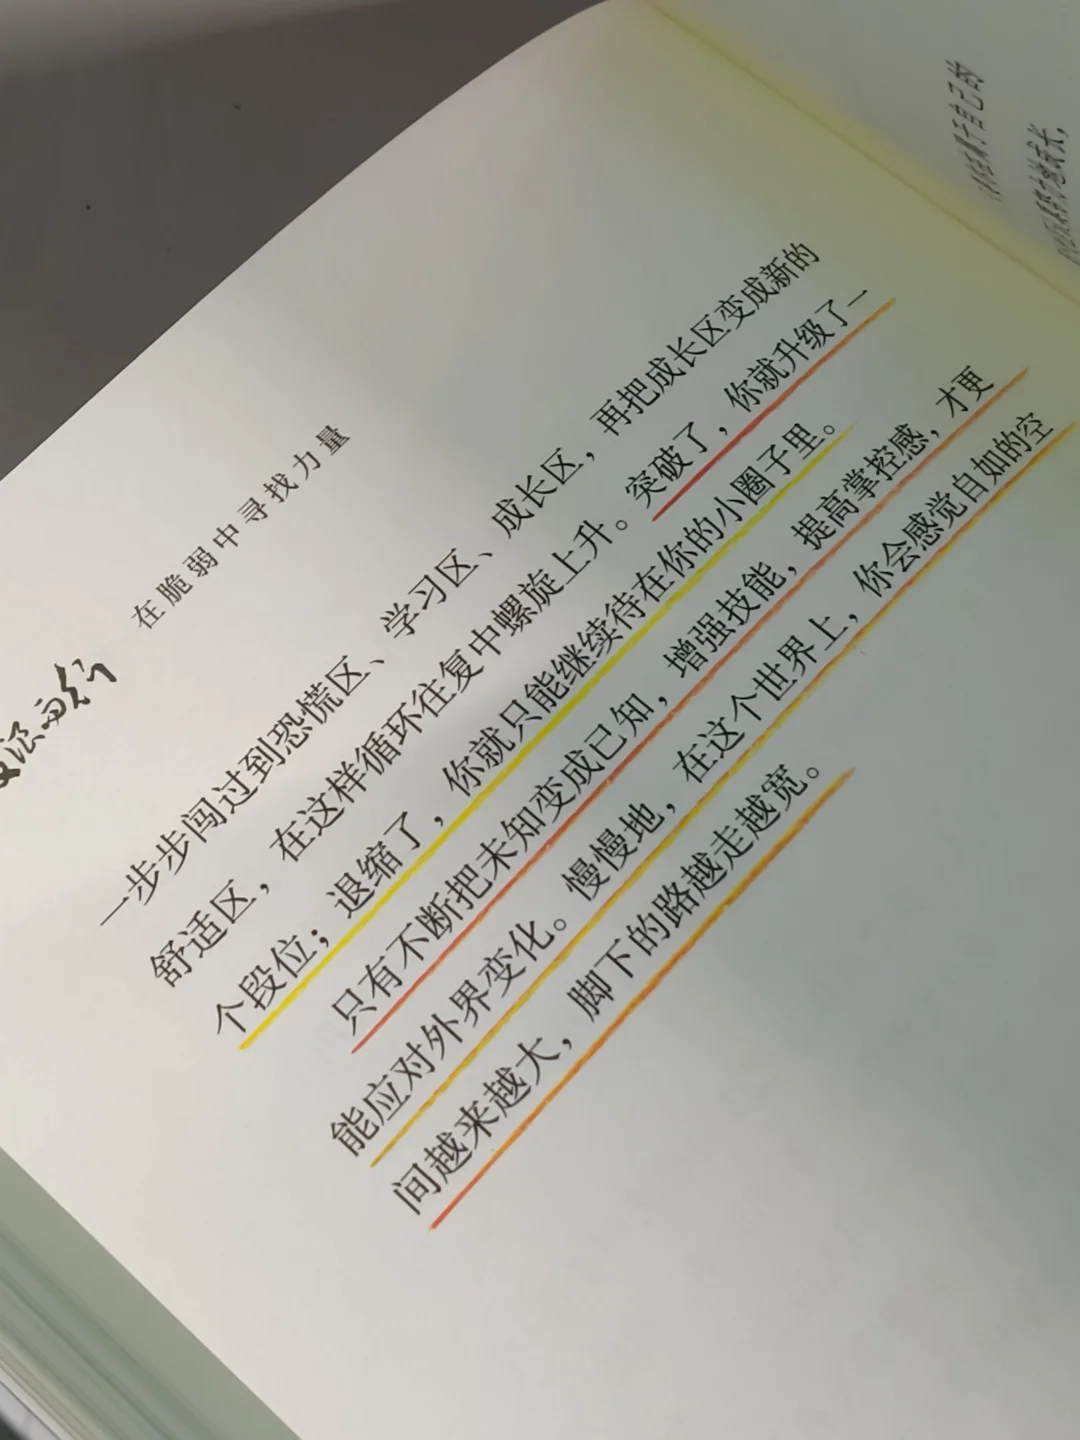 浪而行
在脆弱中寻找力量
一步步闯过到恐慌区、学习区、成长区，再把成长区变成新的
舒适区，在这样循环往复中螺旋上升。突破了，你就升级了一
个段位；退缩了，你就只能继续待在你的小圈子里。
只有不断把未知变成已知，增强技能，提高掌控感，才更
能应对外界变化。慢慢地，在这个世界上，你会感觉自如的空
间越来越大，脚下的路越走越宽。
于自己的
成长，